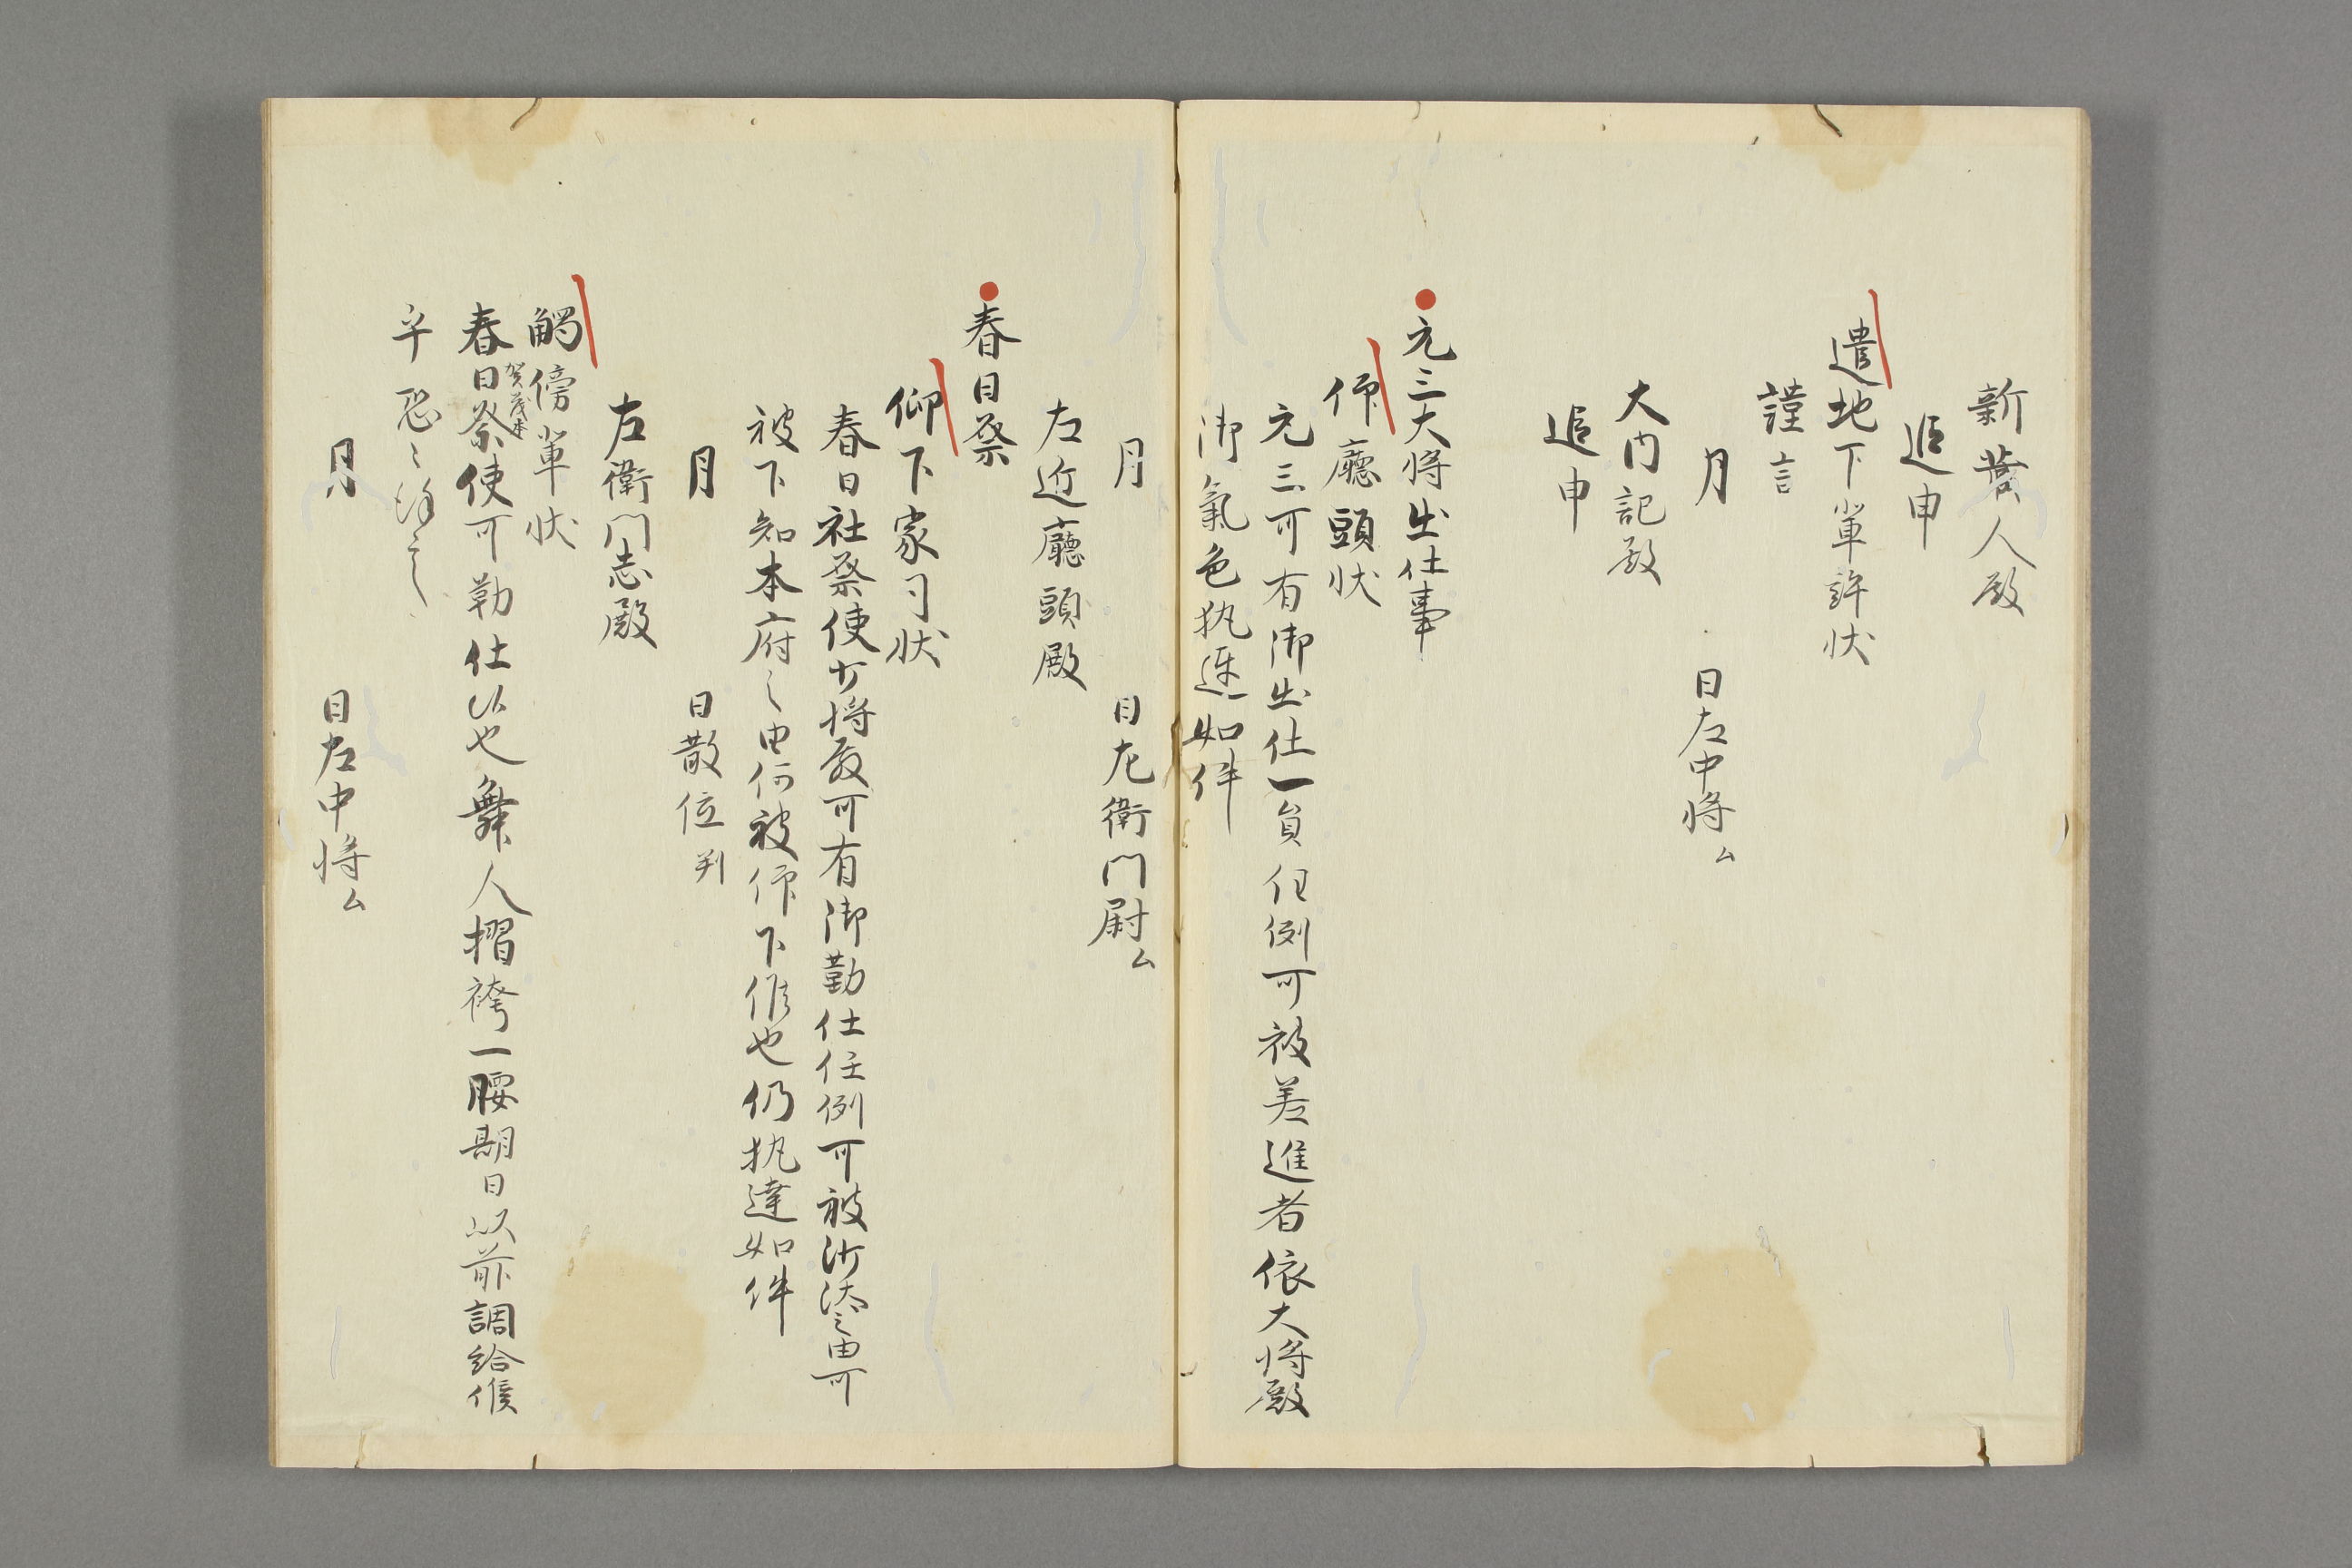 新蔵人殿
追申
遣地下軰許状
謹言
月　日左中将ム
大内記殿
追申
元三大将出仕事
仰廳頭状
元三可有御出仕一員任例可被差進者依大将殿
御氣色執達如件
月　日左衛門尉ム
左近廳頭殿
春日祭
仰下家司状
春日社祭使少将殿可有御勤仕任例可被沙汰之由可
被下知本府之由何被仰下候也仍執達如件
月　日散位判
左衛門志殿
觸傍軰状
賀茂本
春日祭使可勤仕候也舞人摺袴一腰期日以前調給候
乎恐々謹言
月　日左中将ム